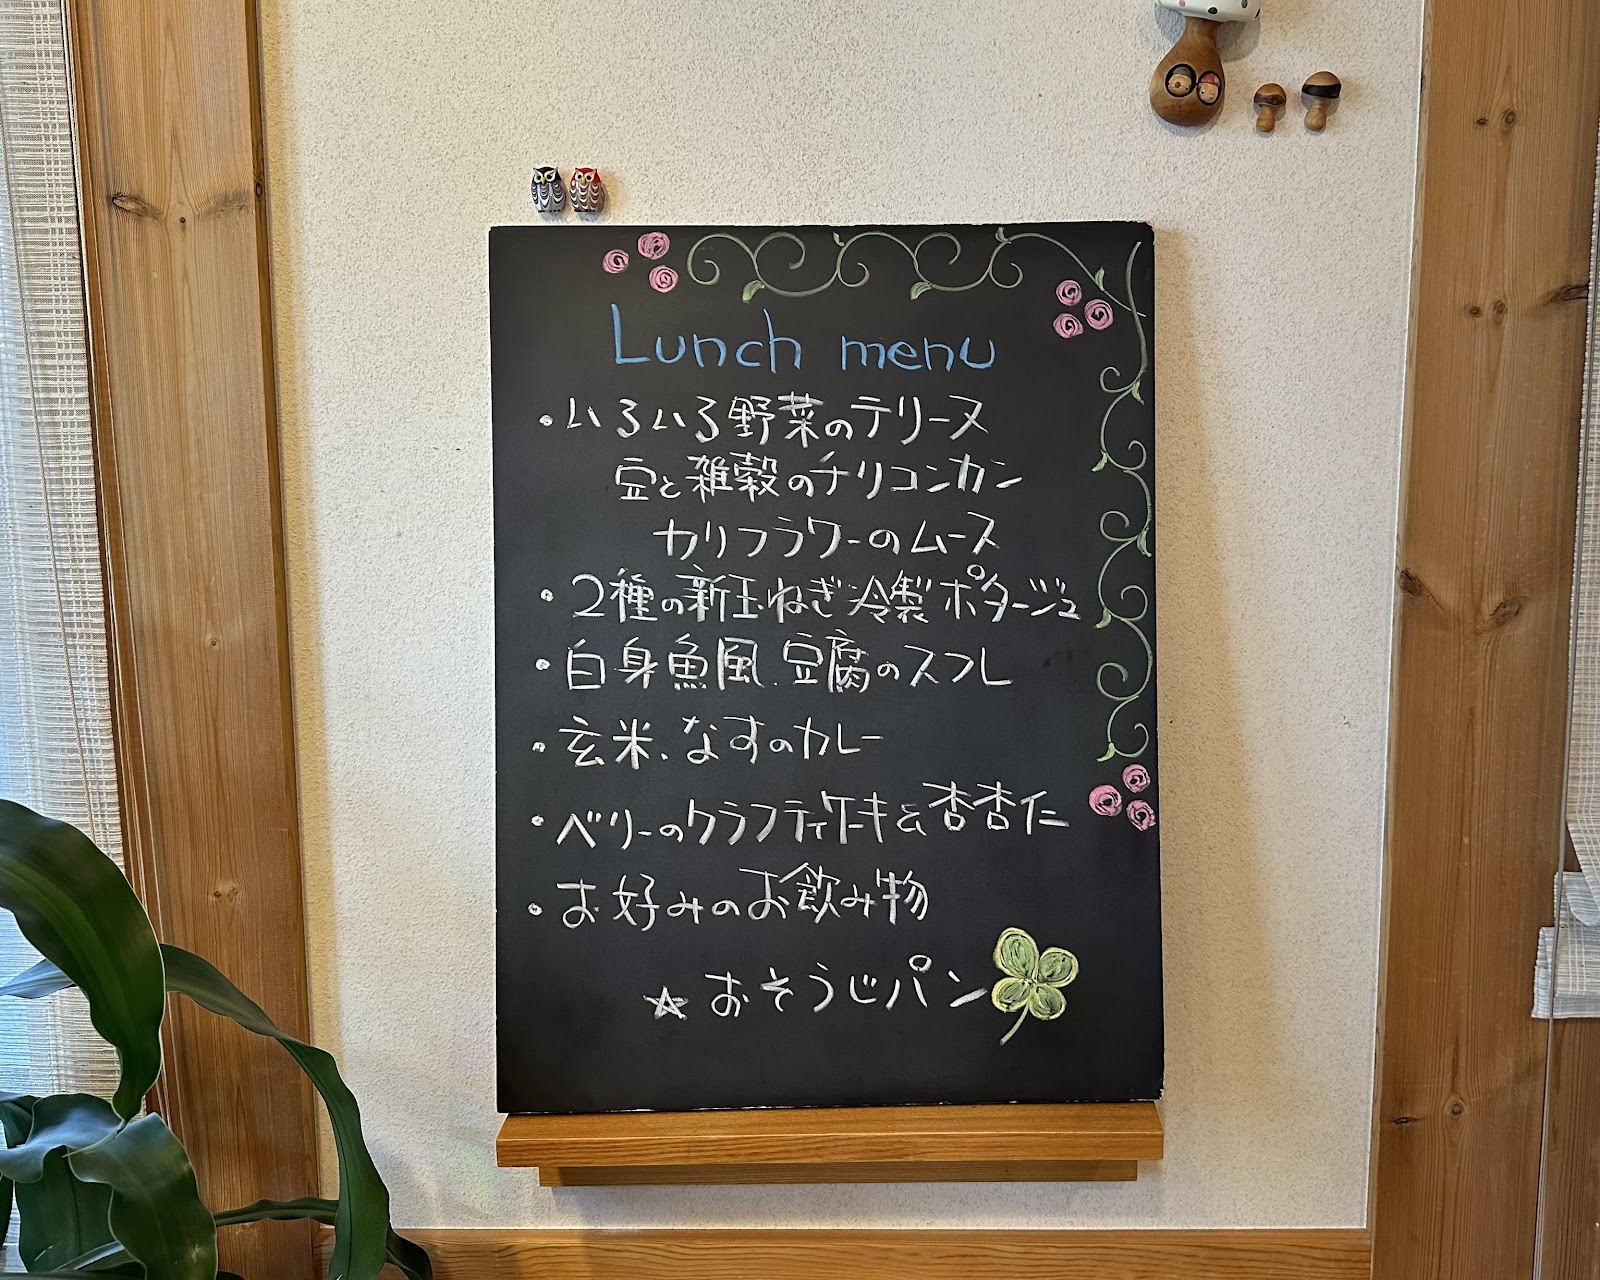 Lunch menu
・いろいろ野菜のテリーヌ
豆と雑穀のチリコンカン
カリフラワーのムース
・2種の新玉ねぎ冷製ポタージュ
・白身魚風、豆腐のスフレ
・玄米、なすのカレー
・ベリーのクラフティケーキ&杏杏仁
・お好みのお飲み物
☆おそうじパン